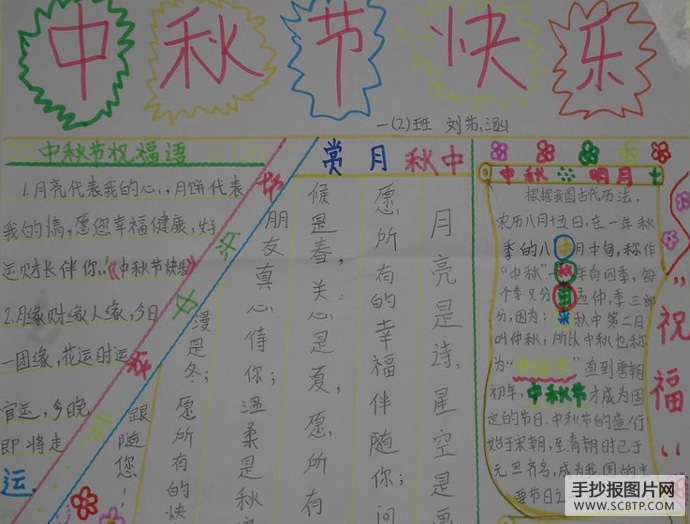 中秋节快乐
一(2)班 刘
中秋节祝福语
1.月亮代表我的心,月饼代表
我的情,愿您幸福健康,好
运财长伴你。《中秋节快乐》
2.月缘财缘人缘,今日
一团缘,花运时运
官运,今晚
即将走
运。
赏月秋中
月亮是诗,星空是
愿所有的幸福伴随你;问
候是春,关心是夏,愿所有
朋友真心待你;温柔是秋
漫是冬;愿所有的快
跟随您!
中秋 明月
根据我国古代历法,
农历八月十五日,在一年秋
季的八月中旬,称作
“中秋”一年有四季,每
个季又分孟仲,季三部
分,因为:秋中第二月
叫仲秋,所以中秋也称
为“ ”直到唐朝
初年,中秋节才成为固
定的节日.中秋节的盛行
始于宋朝,至清朝时已于
元旦齐名,成为我国的主
要节日之
“祝福“
手抄报图片网
WWW.SCBTP.COM